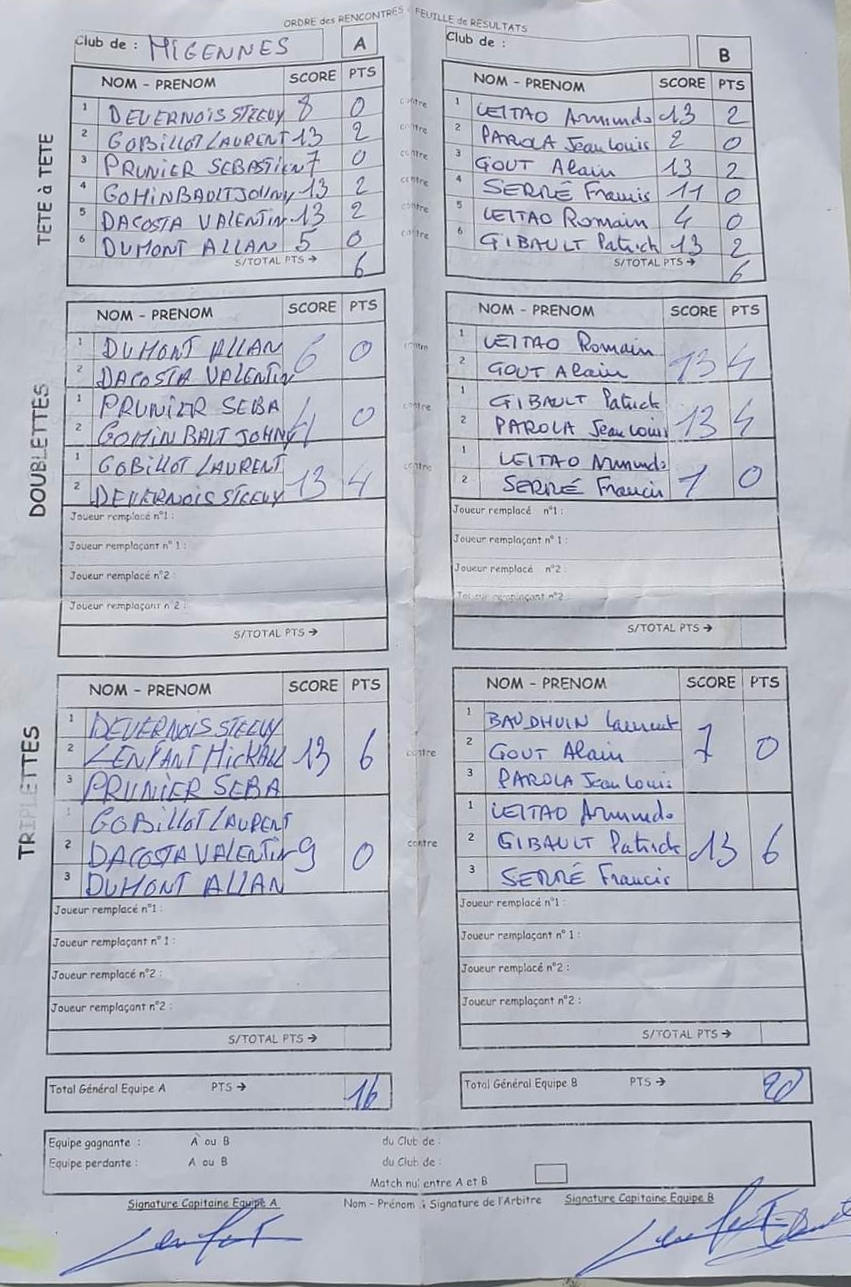 ORDRE des RENCONTRES - FEUILLE de RESULTATS
Club de : MIGENNES A
Club de : B
TETE à TETE
NOM - PRENOM SCORE PTS
1 DEVERNOIS STEEVY 8 0
2 GOBILLOT LAURENT 13 2
3 PRUNIER SEBASTIEN 7 0
4 GOMINBAULT JOHNY 13 2
5 DACOSTA VALENTIN 13 2
6 DUMONT ALLAN 5 0
S/TOTAL PTS → 6
contre
contre
contre
contre
contre
contre
NOM - PRENOM SCORE PTS
1 LEITAO Armindo 13 2
2 PAROLA Jean Louis 2 0
3 GOUT Alain 13 2
4 SERRÉ Francis 11 0
5 LEITAO Romain 4 0
6 GIBAULT Patrick 13 2
S/TOTAL PTS → 6
DOUBLETTES
NOM - PRENOM SCORE PTS
1 DUMONT ALLAN
2 DACOSTA VALENTIN 6 0
1 PRUNIER SEBA
2 GOMINBAULT JOHNY 4 0
1 GOBILLOT LAURENT
2 DEVERNOIS STEEVY 13 4
Joueur remplacé n°1 :
Joueur remplaçant n° 1 :
Joueur remplacé n°2 :
Joueur remplaçant n°2 :
S/TOTAL PTS →
contre
contre
contre
NOM - PRENOM SCORE PTS
1 LEITAO Romain
2 GOUT Alain 13 4
1 GIBAULT Patrick
2 PAROLA Jean Louis 13 4
1 LEITAO Armindo
2 SERRÉ Francis 7 0
Joueur remplacé n°1 :
Joueur remplaçant n° 1 :
Joueur remplacé n°2 :
Joueur remplaçant n°2 :
S/TOTAL PTS →
TRIPLETTES
NOM - PRENOM SCORE PTS
1 DEVERNOIS STEEVY
2 LENFANT MICKAEL 13 6
3 PRUNIER SEBA
1 GOBILLOT LAURENT
2 DACOSTA VALENTIN 9 0
3 DUMONT ALLAN
Joueur remplacé n°1 :
Joueur remplaçant n° 1 :
Joueur remplacé n°2 :
Joueur remplaçant n°2 :
S/TOTAL PTS →
contre
contre
NOM - PRENOM SCORE PTS
1 BAUDHUIN Laurent
2 GOUT Alain 7 0
3 PAROLA Jean Louis
1 LEITAO Armindo
2 GIBAULT Patrick 13 6
3 SERRÉ Francis
Joueur remplacé n°1 :
Joueur remplaçant n° 1 :
Joueur remplacé n°2 :
Joueur remplaçant n°2 :
S/TOTAL PTS →
Total Général Equipe A PTS → 16
Total Général Equipe B PTS → 20
Equipe gagnante : A ou B du Club de :
Equipe perdante : A ou B du Club de :
Match nul entre A et B
Signature Capitaine Equipe A
Nom - Prénom & Signature de l'Arbitre
Signature Capitaine Equipe B